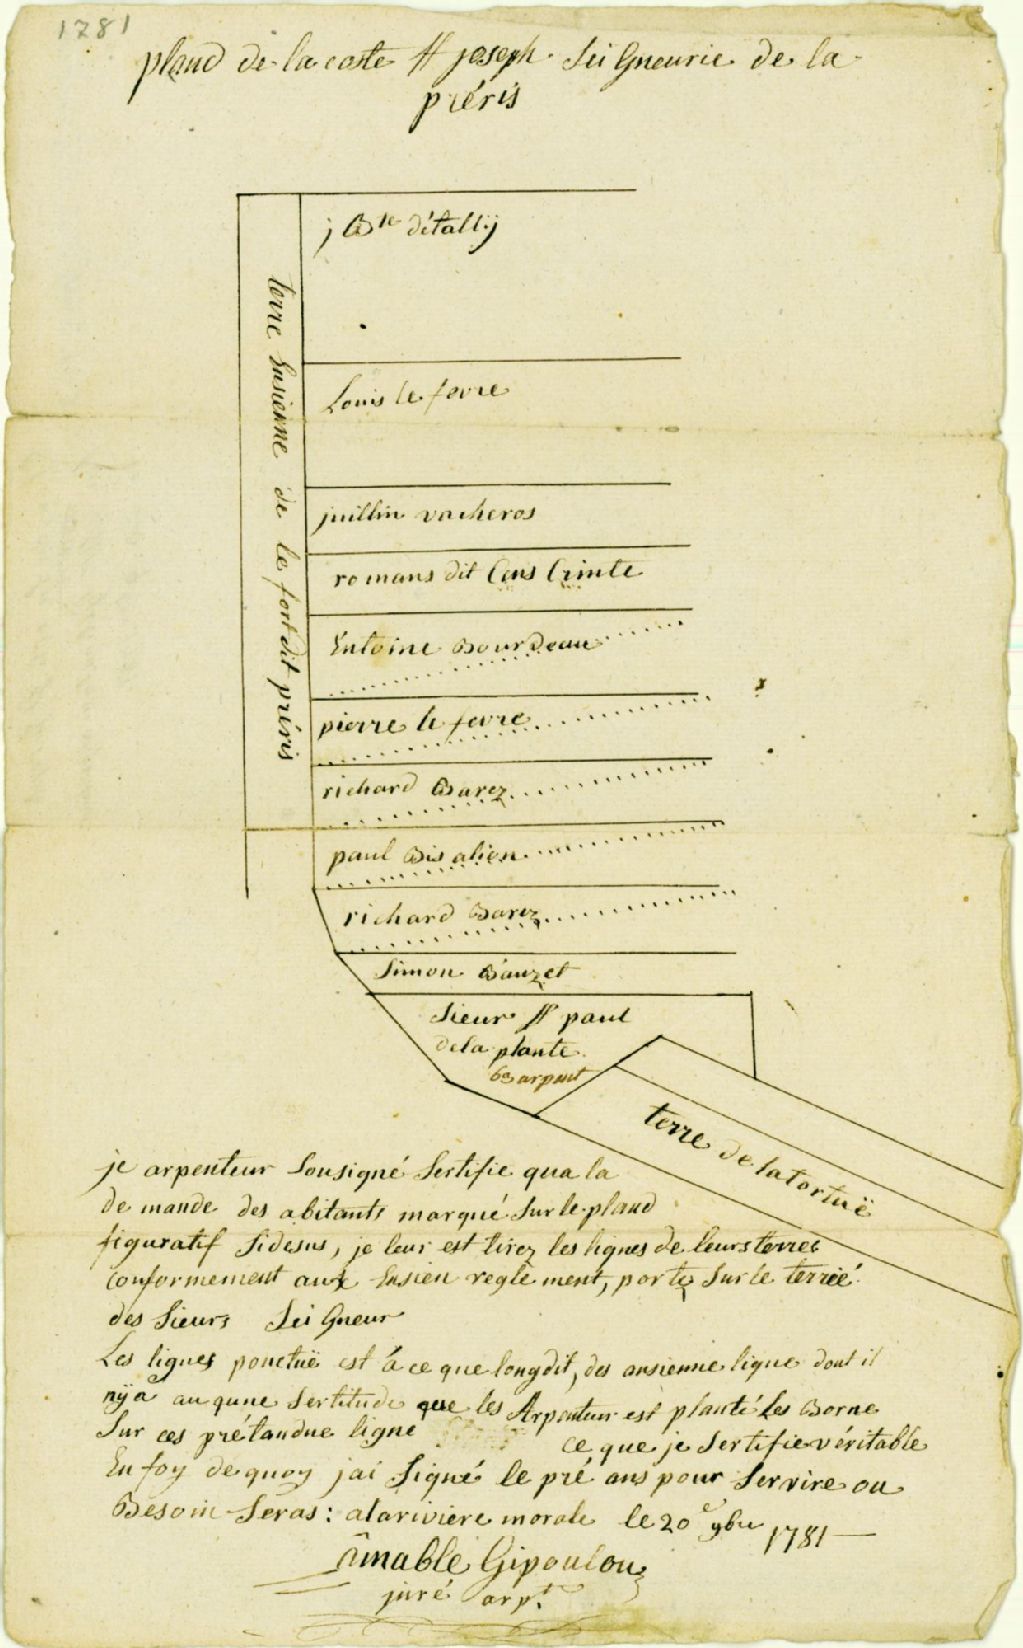 1781
pland de la coste St joseph Seigneurie de la
préris
j Bte détallÿ
terre ensienne de le fort dit préris
Louis le fevre
juillin vacheros
romans dit Sans Crinte
Entoine Bourdeau
pierre le fevre
richard Barez
paul Bisalien
richard Barez
Simon Bauzet
Sieur St paul
de la plante
60 arpent
terre de latortuë
je arpenteur Sousigné Sertifie qua la
de mande des abitants marqué Sur le pland
figuratif Sidesus, je leur est tirez les lignes de leurs terres
Conformement aux ensien regle ment, porte Sur le terrié
des Sieurs Sei Gneur
Les lignes ponctuë est á ce que longdit, des ansienne ligne dont il
nÿa auqune Sertitude que les Arpenteur est planté Les Borne
Sur ces prétandue ligne
Ce que je Sertifie véritable
En foy dequoy jai Signé le pré ans pour Servire ou
Besoin Seras : alarivière morale le 20e 9bre 1781
Amable Gipoulou
juré arpt